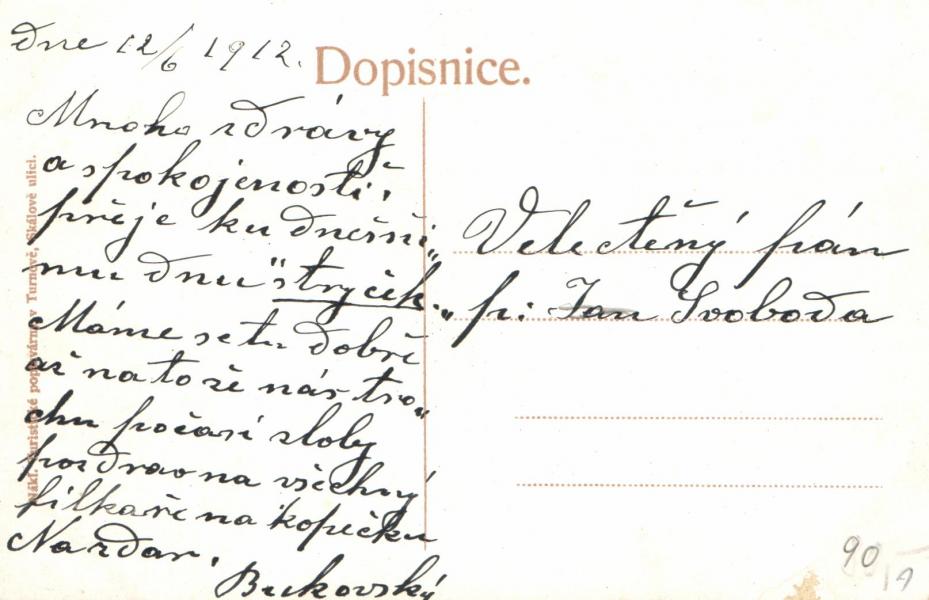 Dne 12/6 1912.
Dopisnice.
Mnoho zdrávy
a spokojenosti.
přeje ku dnešní„
mu dnu "strýček.„
Máme se tu dobře
až na to že nás tro„
chu počasí zloby
pozdrav na všechny
filkaře na kopečku
Nazdar.
Bukovský
Velectěný pán
p: Jan Svoboda
Nákl. Turistické v Turnově, Skálově ulici.
90